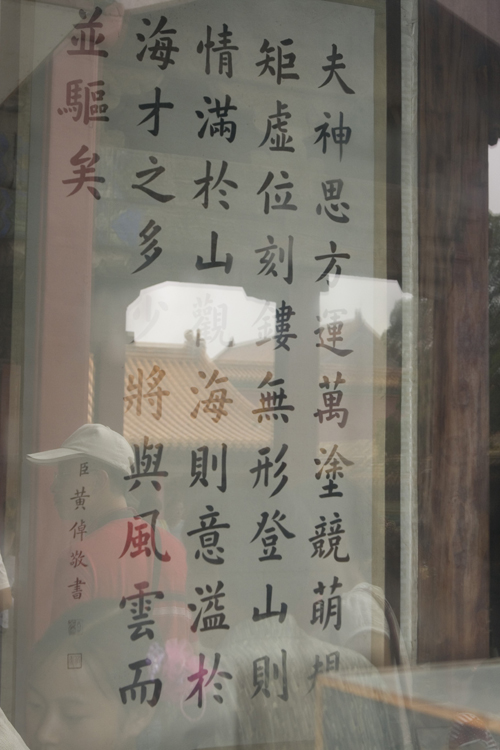 夫神思方運萬塗競萌規
矩虛位刻鏤無形登山則
情滿於山觀海則意溢於
海才之多少將與風雲而
並驅矣
臣黃倬敬書